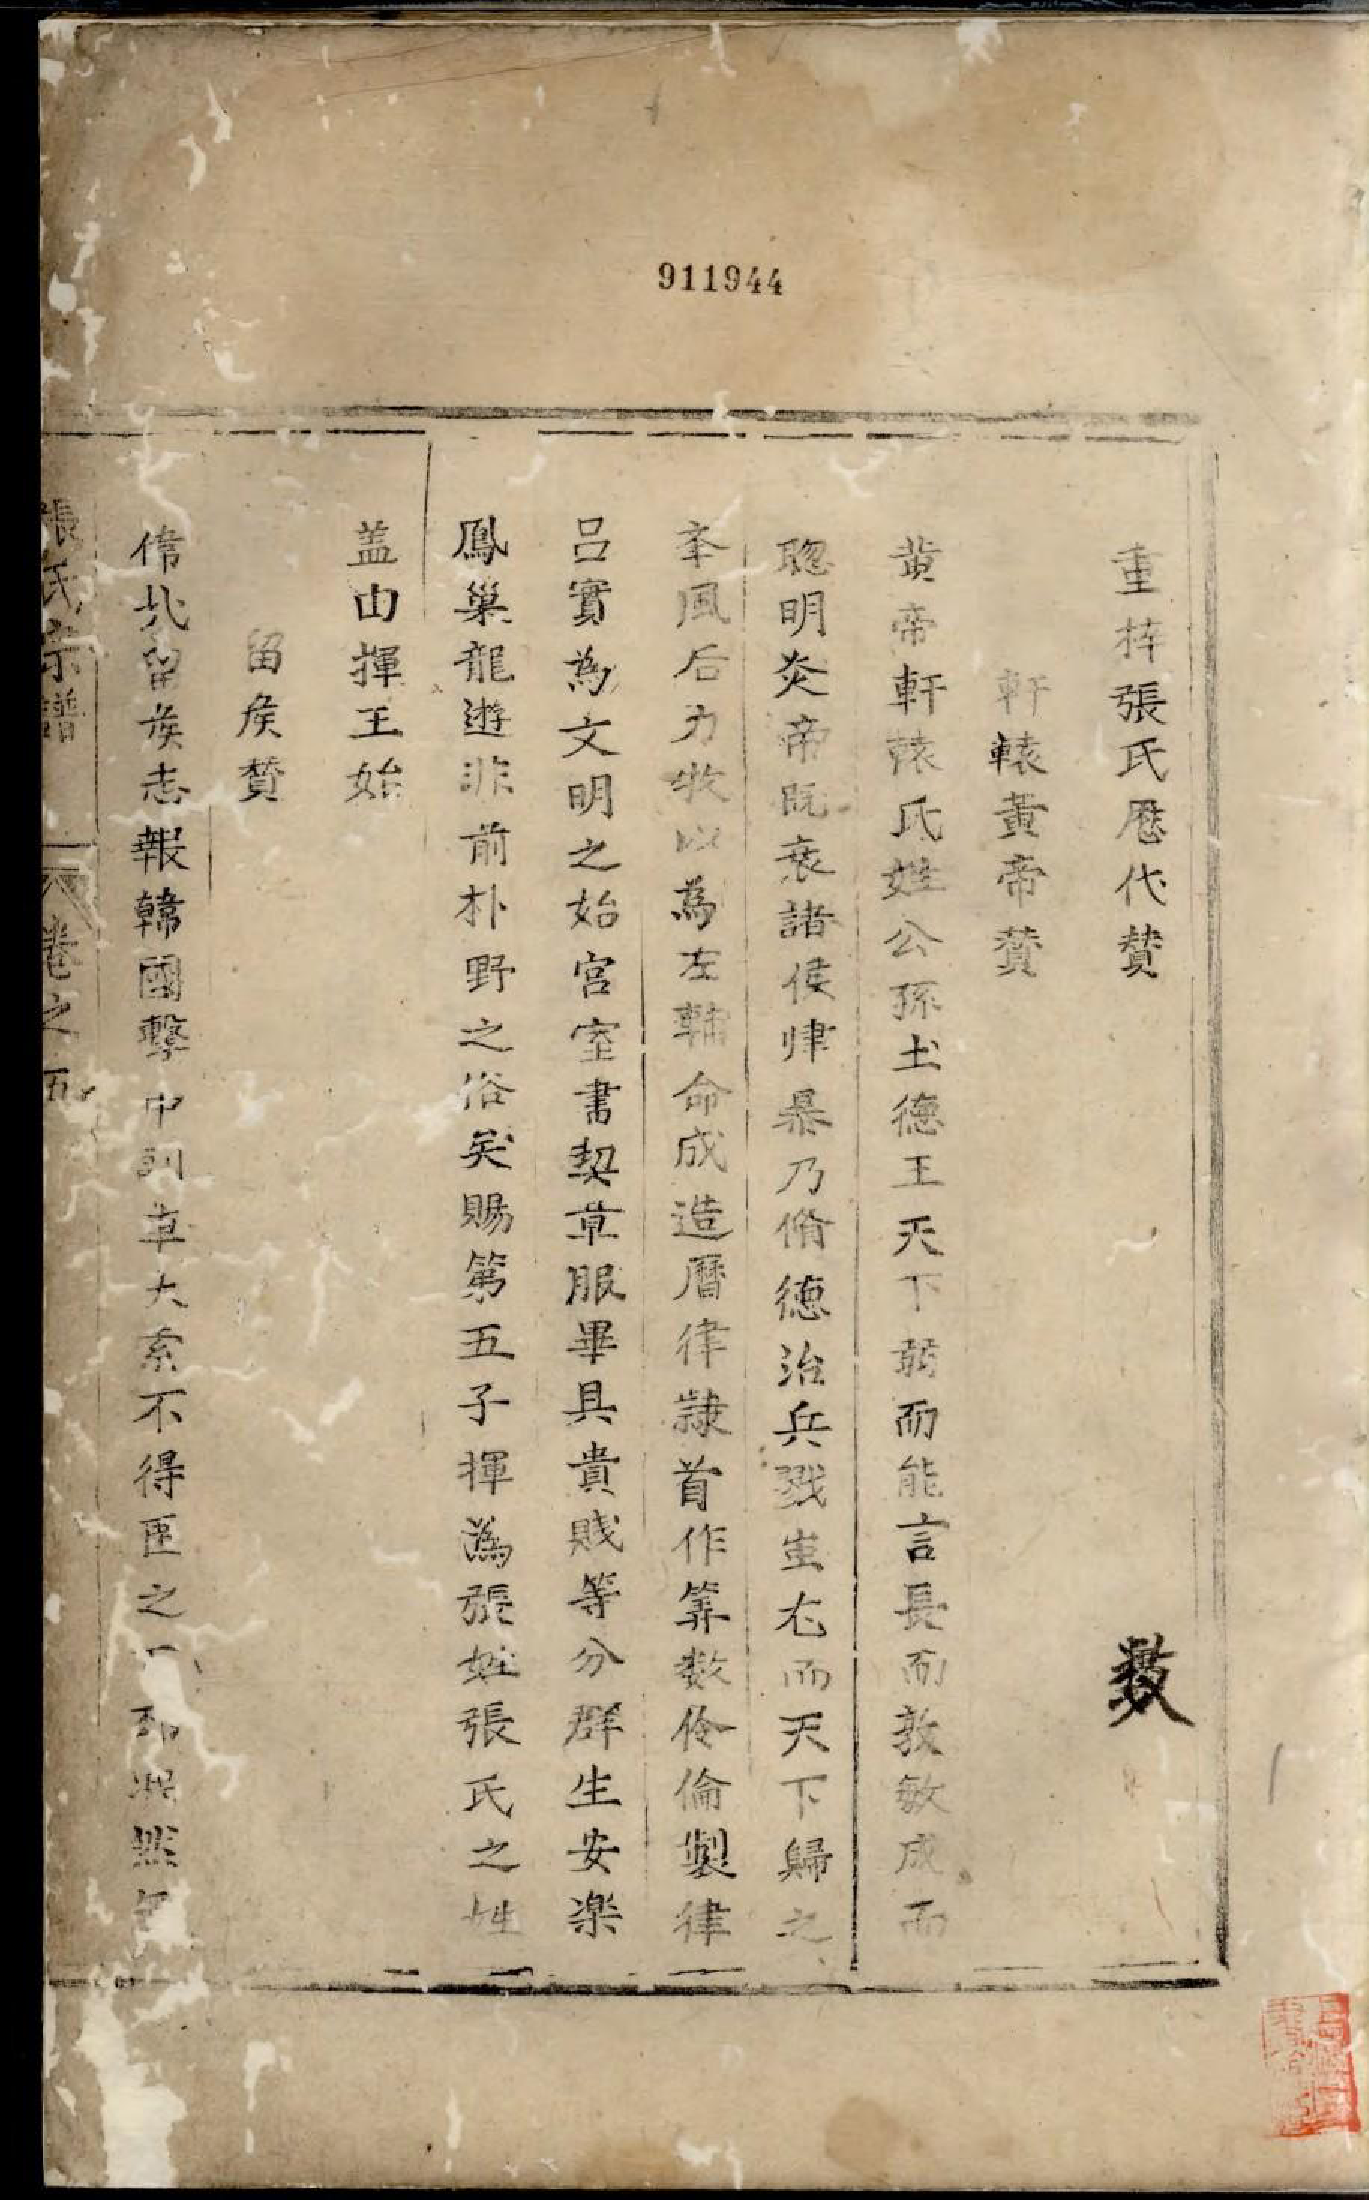 911944
重梓張氏歷代贊
數
軒轅黃帝贊
黄帝軒轅氏姓公孫土德王天下弱而能言長而敦敏成而
聰明炎帝既衰諸侯肆暴乃脩德治兵戮蚩尤而天下歸之
夆風后力牧以為左輔命成造曆律隷首作筭数伶倫製律
呂實為文明之始宮室書契章服畢具貴賤等分群生安楽
鳳巢龍遊非前朴野之俗矣賜第五子揮為張姓張氏之姓
盖由揮王始
留矦贊
偉哉留矦志報韓國擊中副車大索不得臣之
張氏宗譜
卷之五